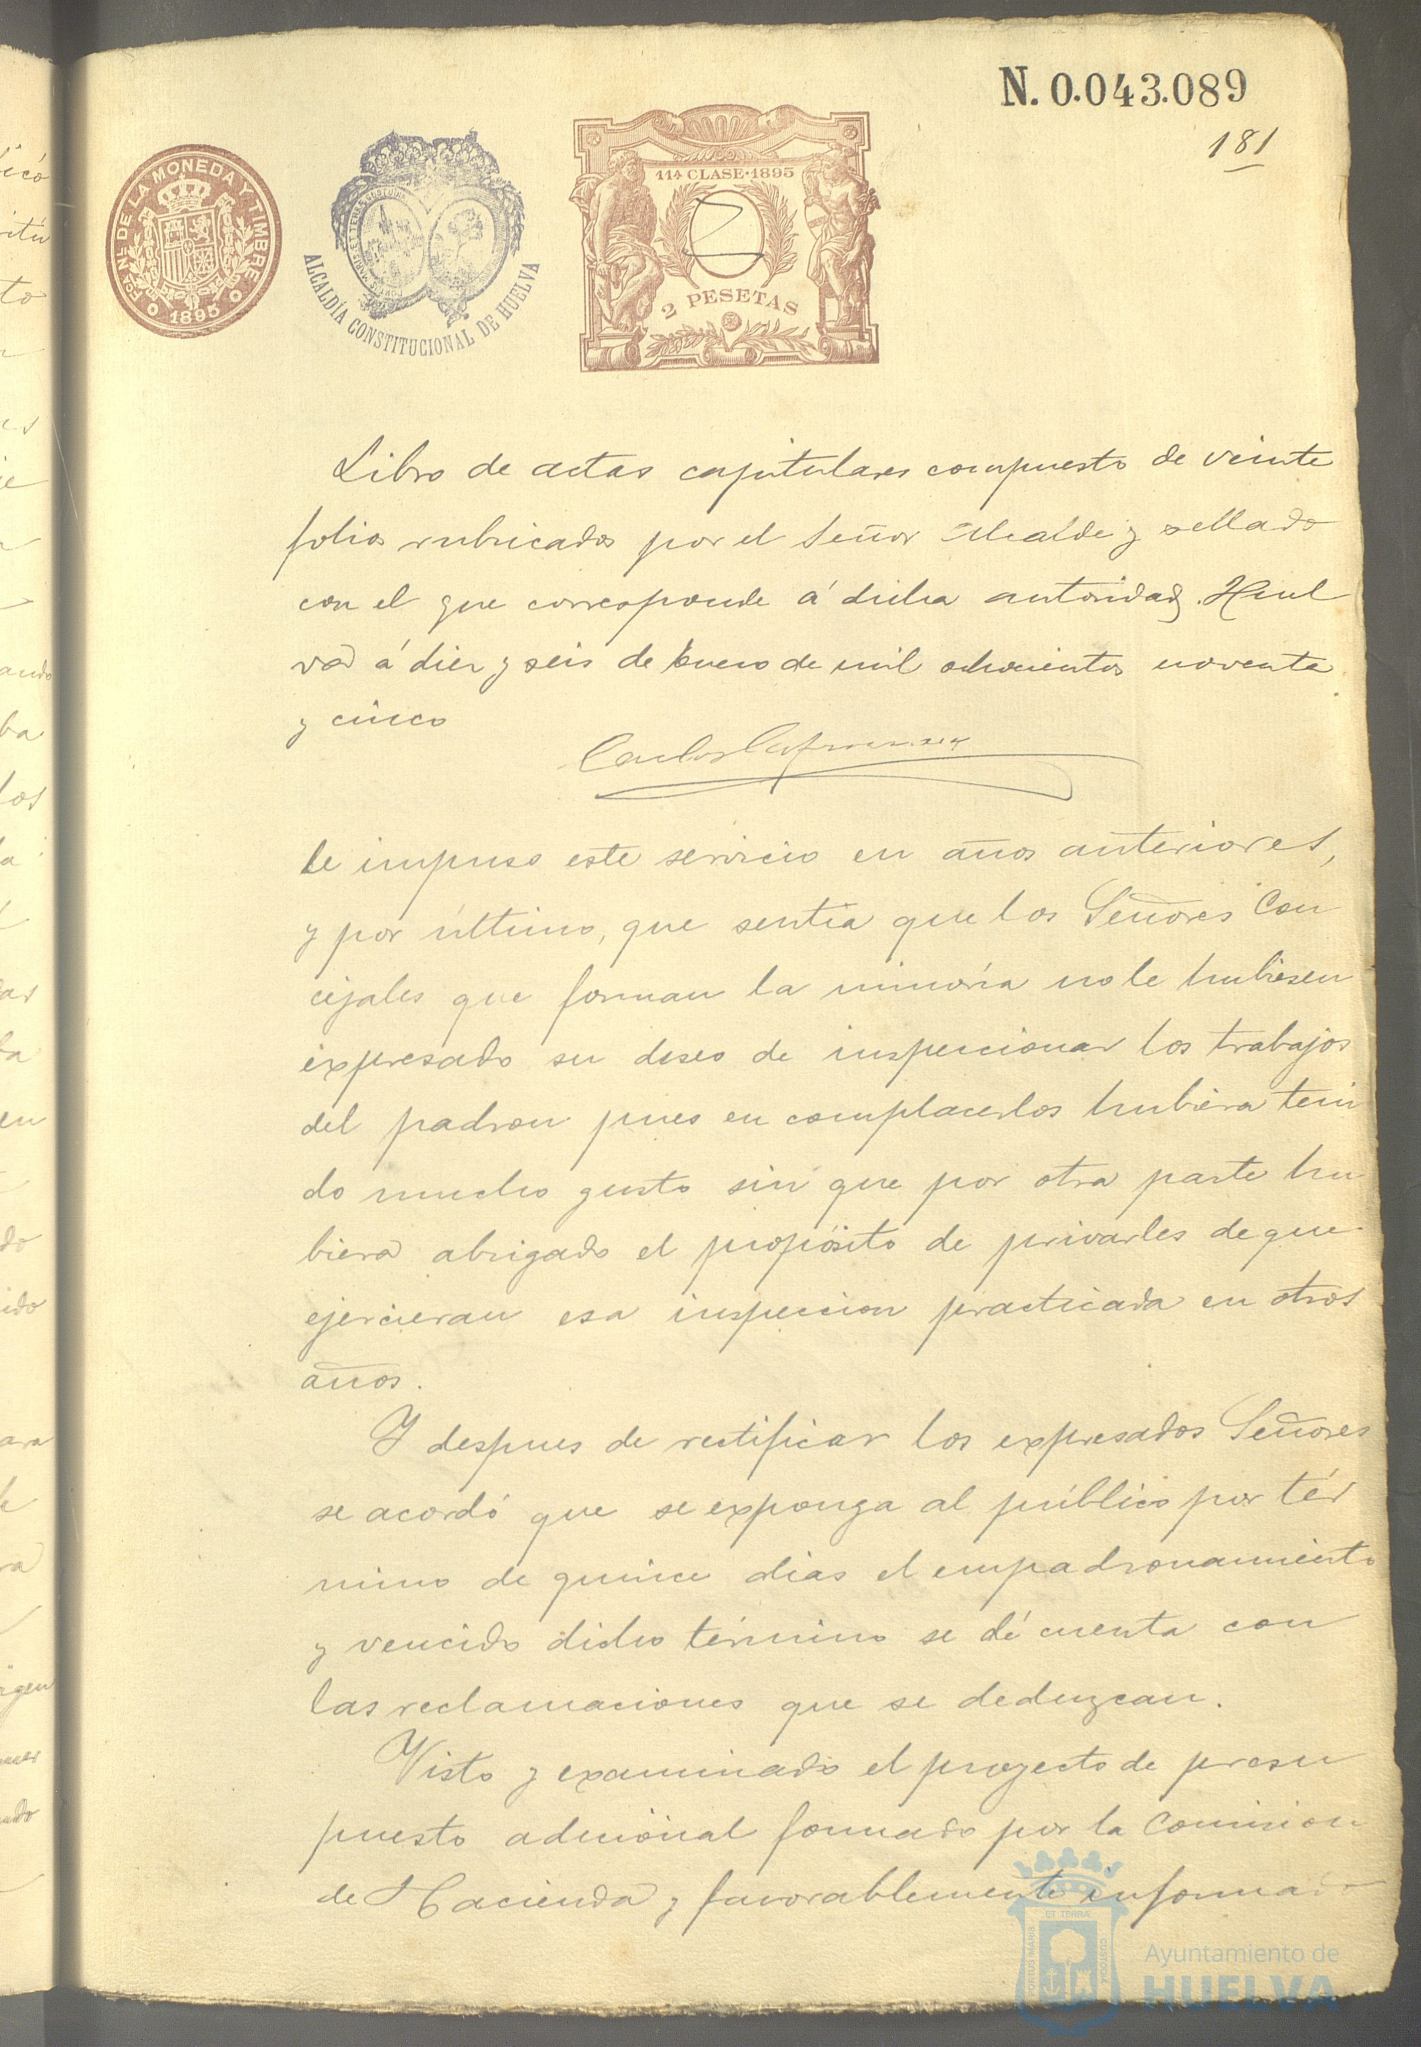 N. 0.043.089
181
FCA. NAL. DE LA MONEDA Y TIMBRE
1895
ALCALDÍA CONSTITUCIONAL DE HUELVA
11ª CLASE·1895
2 PESETAS
Libro de actas capitulares compuesto de veinte
folios rubricados por el Señor Alcalde y sellado
con el que corresponde á dicha autoridad. Huel
va á diez y seis de Enero de mil ochocientos noventa
y cinco
Carlos
le impuso este servicio en años anteriores,
y por último, que sentia que los Señores Con
cejales que forman la minoría no le hubiesen
expresado su deseo de inspeccionar los trabajos
del padron pues en complacerlos hubiera teni
do mucho gusto sin que por otra parte hu
biera abrigado el propósito de privarles de que
ejercieran esa inspeccion practicada en otros
años.
Y despues de rectificar los expresados Señores
se acordó que se exponga al público por tér
mino de quince dias el empadronamiento
y vencido dicho término se dé cuenta con
las reclamaciones que se deduzcan.
Visto y examinado el proyecto de presu
puesto adicional formado por la Comision
de Hacienda y favorablemente informado
Ayuntamiento de
HUELVA